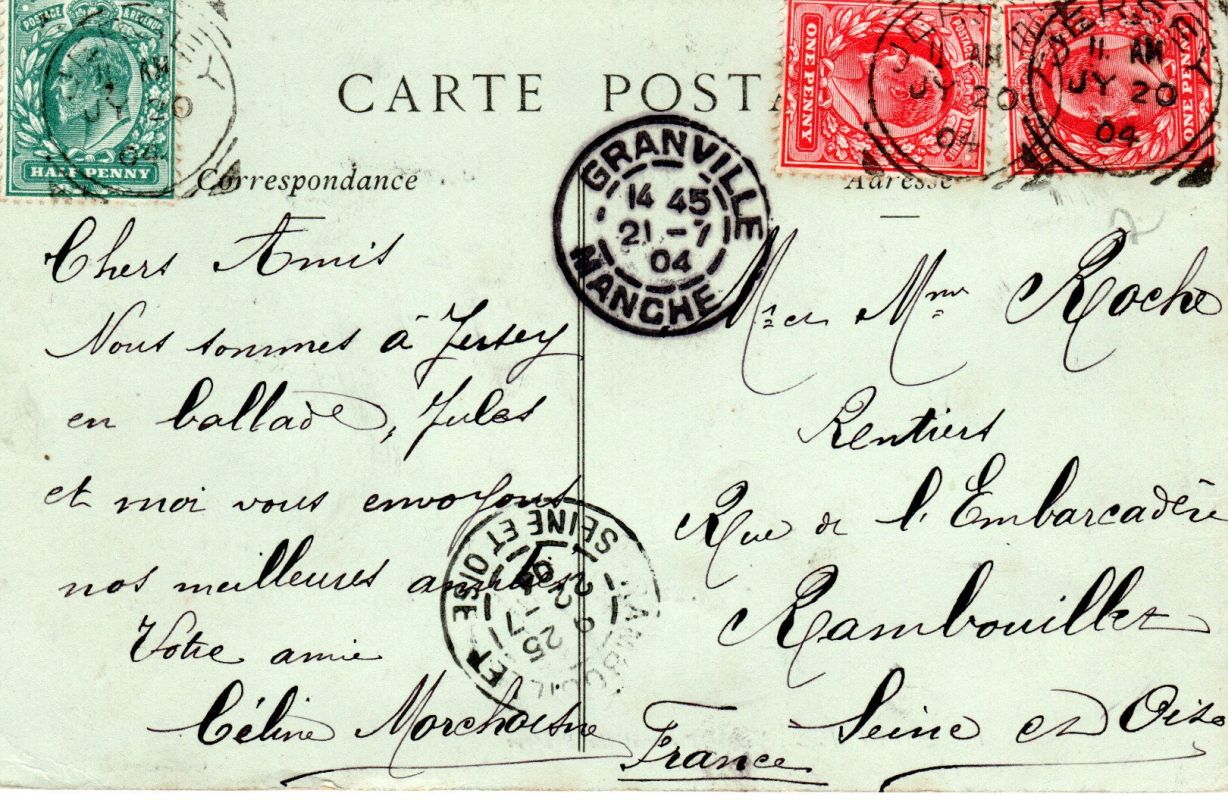 POSTAGE & REVENUE
HALF PENNY
JERSEY
11 AM
JY 20
04
CARTE POSTA
ONE PENNY
POSTAGE
JERSEY
11 AM
JY 20
04
ONE PENNY
JERSEY
11 AM
JY 20
04
GRANVILLE
14 45
21-7
04
MANCHE
Correspondance
Chers Amis
Nous sommes à Jersey
en ballade, Jules
et moi vous envoyons
nos meilleures
Votre amie
Céline
Adresse
Mr et Mme Roche
Rentiers
Rue de l'Embarcadère
Rambouillet
Seine et Oise
France
RAMBOUILLET
9 25
22-7
04
SEINE ET OISE